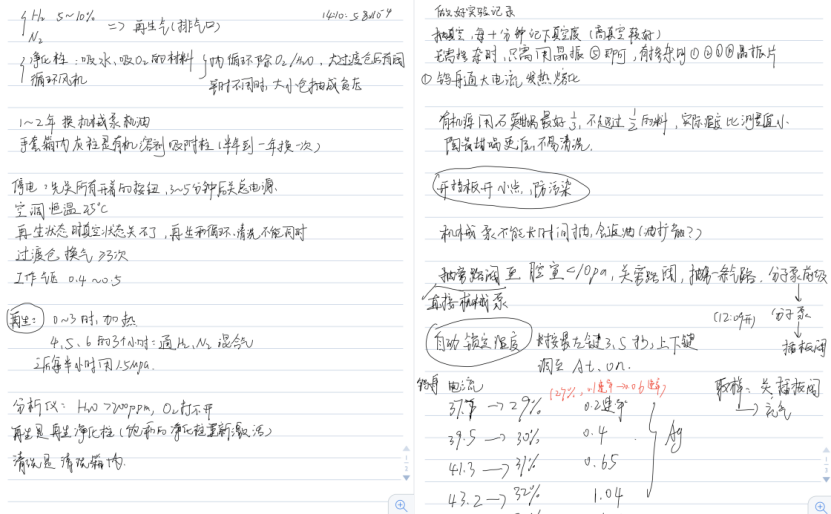 H₂ 5~10%
N₂
=> 再生气(排气口)
净化柱:吸水、吸O₂的材料
循环风机
内循环除O₂/H₂O,大过渡仓后有阀
平时不用时,大小仓抽成负压
1~2年换机械泵机油
手套箱内灰柱是有机溶剂吸附柱(半年到一年换一次)
停电:先关所有开着的按钮,3~5分钟后关总电源.
空调恒温25℃
再生状态时真空状态关不了,再生和循环.清洗不能同时
过渡仓换气≥3次
工作气压 0.4~0.5
再生: 0~3时,加热
4、5、6的3个小时:通H₂、N₂混合气
之后每半小时用1.5Mpa.
分析仪: H₂O>200ppm, O₂打不开
再生是再生净化柱(饱和的净化柱重新激活)
清洗是清洗箱内.
做好实验记录
抽真空,每十分钟记下真空度(高真空较好)
无需掺杂时,只需用晶振⑤即可,有掺杂则①②③④晶振片
① 钨舟通大电流 发热熔化
有机源用石英坩埚最好1/3,不超过1/2的料,实际温度比测量值小
陶瓷坩埚更大,不易清洗.
开挡板开小点,防污染
机械泵不能长时间抽,会返油(油扩散?)
抽旁路阀至腔室<10pa,关旁路阀,抽另一条气路.分子泵前级
直接机械泵
(12:09开)
分子泵
插板阀
自动锁定温度
对按最左键3.5秒,上下键
调至At.on.
钨舟 电流
(27%,0.1速率→0.6速率)
取样:关插板阀
→充气
37.8→29% 0.2速率
39.5→30% 0.4
41.3→31% 0.65
43.2→32% 1.04
Ag